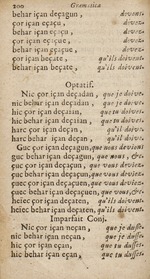 200 Gramatica
behar içan deçagun, deuons.
çor içan eçaçu, deuez.
behar içan eçaçu, deuez.
çor içan eçaçue, deuez.
behar içan eçaçue, deuez.
çor içan beçate, qu'ils doiuent
behar içan beçate, qu'ils doiuent
Optatif.
Nic çor içan deçadan, que je doiue.
nic behar içan deçadan, que je doiue.
hic çor içan deçaan, que tu doiues.
hic behar içan deçaan, que tu doiues.
harc çor içan deçan, qu'il doiue.
harc behar içan deçan, qu'il doiue.
Guc çor içan deçagun, que nous deuions
guc behar içan deçagun, que nous, &c.
çuc çor içan deçaçun, que vous deuiez
çuc behar içan deçaçun, que vous, &c.
çuec çor içan deçaçuen, que vous, &c.
çuec behar içan deçaçuen, que vous, &c.
heïec çor içan deçaten, qu'ils doiuent.
heïec behar içan deçaten, qu'ils doiuent.
Imparfait Conj.
Nic çor içan neçan, que je dusse.
nic behar içan neçan, que je dusse.
hic çor içan eçan, que tu dusses.
hic behar içan eçan, que tu dusses.